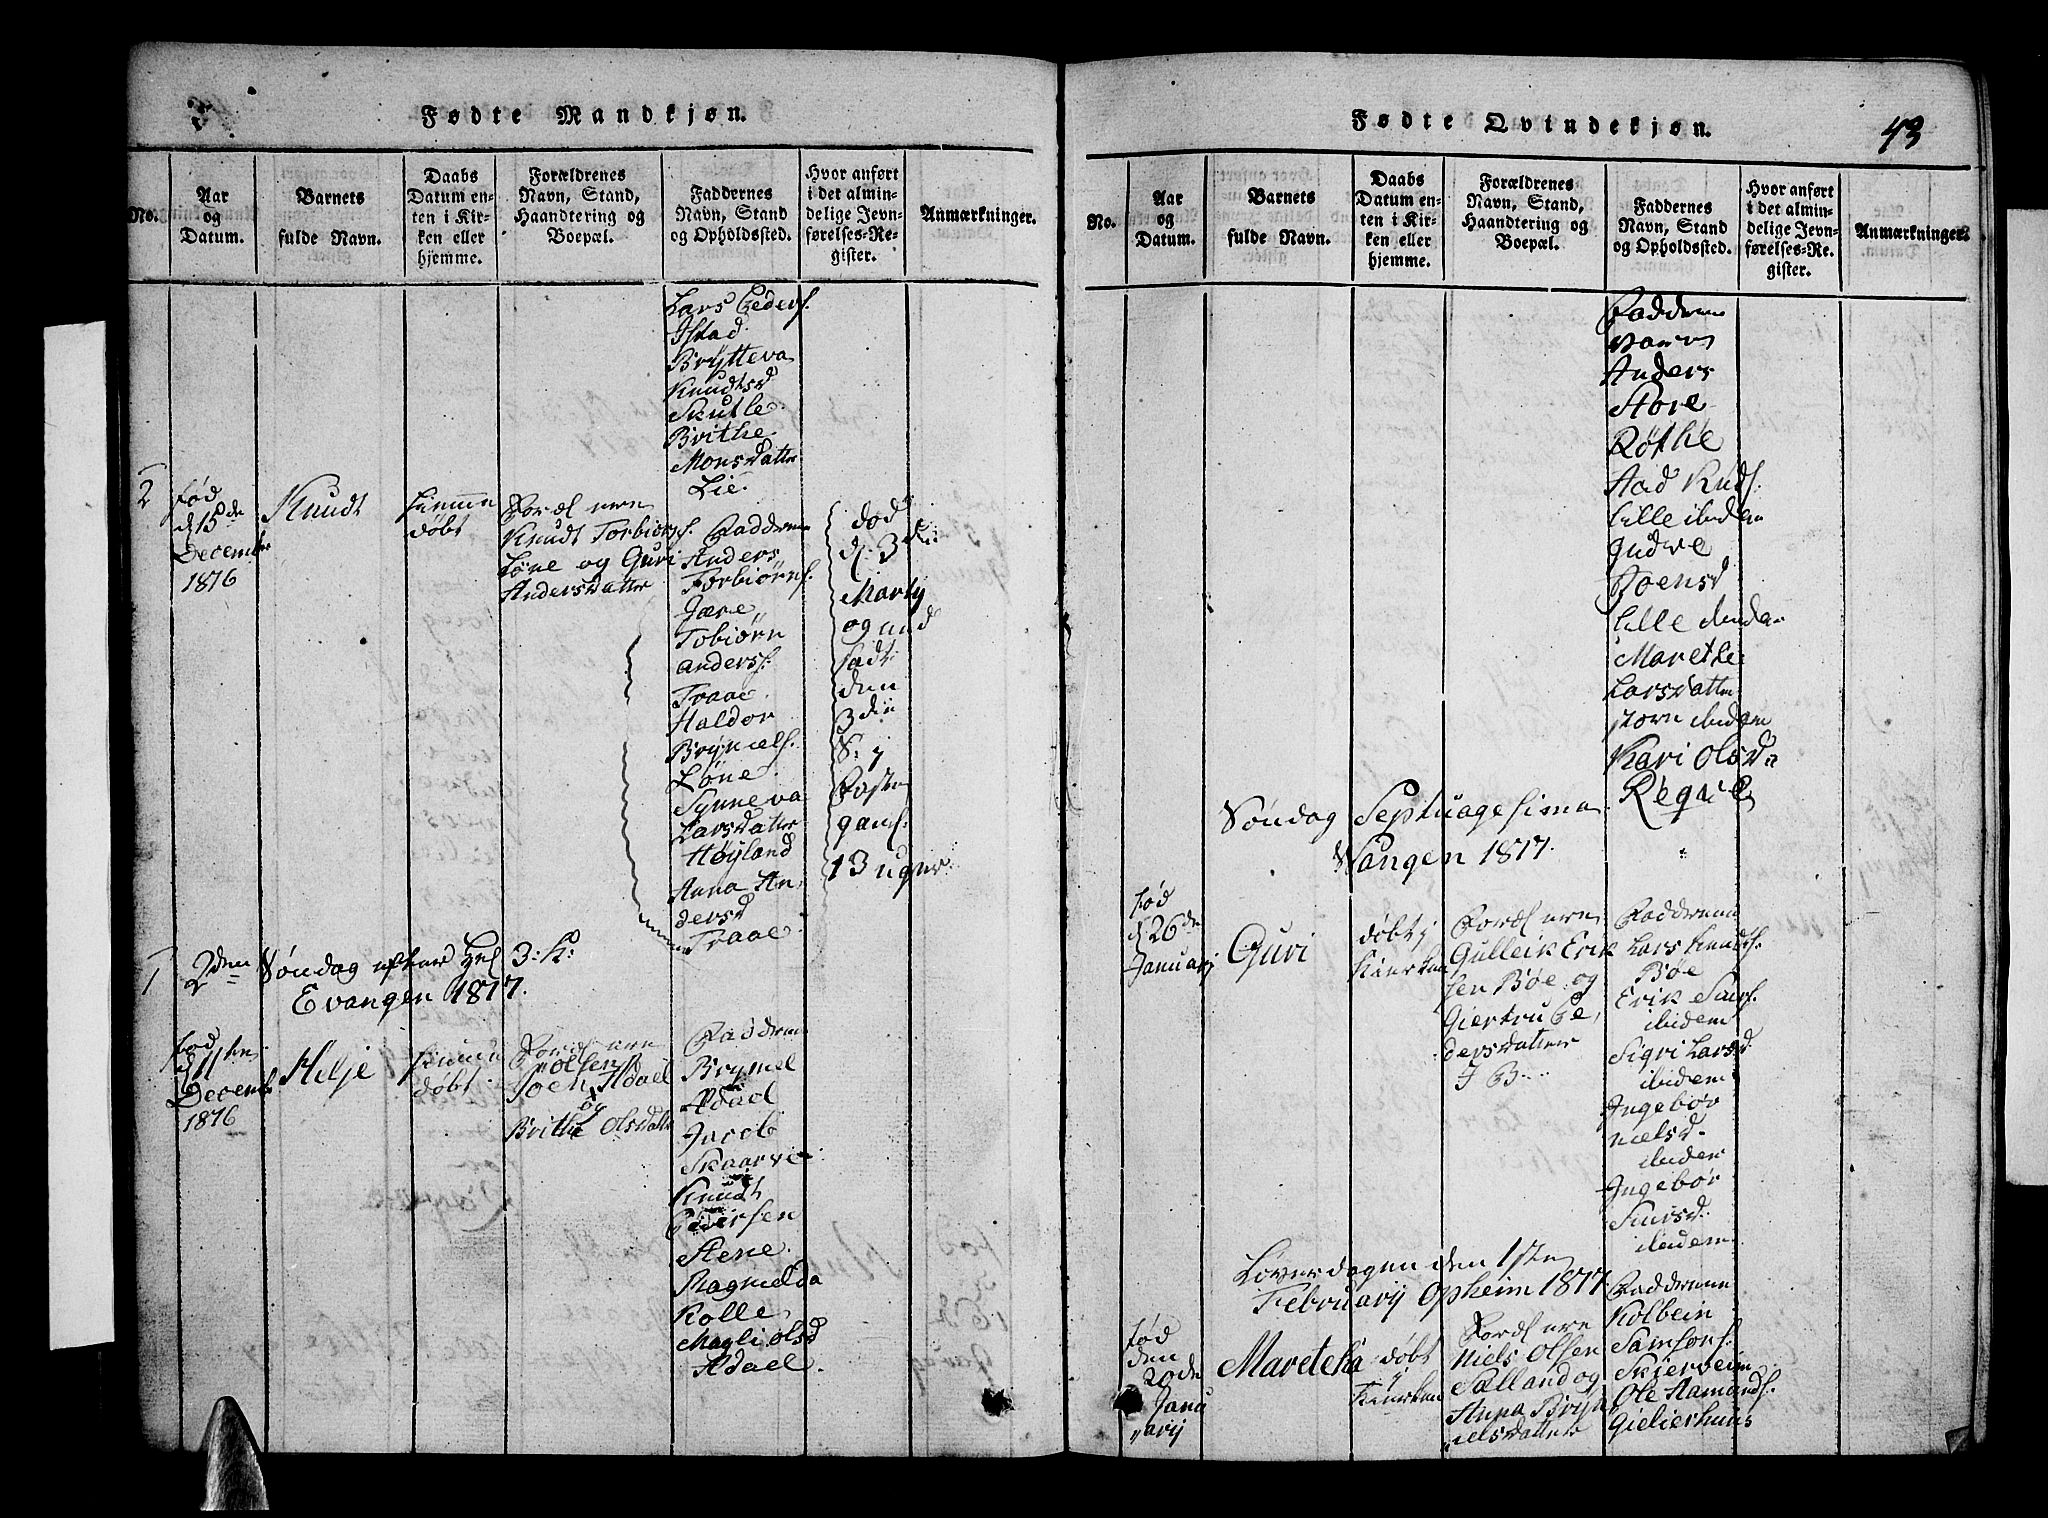 Fødte Mandkjøn.
No.
Aar
og
Datum.
Barnets
fulde Navn.
Daabs
Datum en-
ten i Kir-
ken eller
hjemme.
Forældrenes
Navn, Stand,
Haandtering og
Boepæl.
Faddernes
Navn, Stand
og Opholdssted.
Hvor anført
i det almin-
delige Jevn-
førelses-Re-
gister.
Anmærkninger.
Lars Peders.
Istad
Brytteva
Knudtsd
Skutle
Brithe
Monsdatter
Lie.
2
Fød
d 15de
December
1816
Knudt
hiemme
døbt
Knudt Torbiørs.
Løne og Guri
Andersdatter
Fadderne
Anders
Torbiørns.
Jære
Tobiørn
anders.
Traae
Haldor
Bryniels.
Løne
Synneva
Larsdatter
Høyland
Anna An
dersd
Traae
død
d. 3die
Martij
og
den
3die
S. i
Faste
gaml.
13 uger
1
2den Søndag efter Hel 3: K:
Evangen 1817.
Fød
d 11te
Decemb
1816
Helje
hiemme
døbt
Joen Olsen
Adael
og
Brithe Olsdatter
Fadderne
Brynel
Adael
Jacob
Skaarvie
Knudt
Pedersen
Stene
Ragnelda
Kolle
Magli Olsd
Adael.
Fødte Qvindekjøn.
43
No.
Aar
og
Datum.
Barnets
fulde Navn.
Daabs
Datum en-
ten i Kir-
ken eller
hjemme.
Forældrenes
Navn, Stand,
Haandtering og
Boepæl.
Faddernes
Navn, Stand
og Opholdssted.
Hvor anført
i det almin-
delige Jevn-
førelses-Re-
gister.
Anmærkninger.
Fadderne
Anders
Store
Røthe
Aad Knds.
Lille ibidem
Joensd
Lille
Marethe
Larsdatter
ibidem
Kari Olsd
Reqve
Søndag Septuagesima
Wangen 1817.
Fød
d 26de
Januarij
Guri
døbt i
Kierken
Gulleik Erik
sen Bøe og
Giertru Pe
dersdatter
Fadderne
Lars Knudts.
Bøe
Erik
ibidem
Sigri Larsd
ibidem
Ingebør
nielsd.
ibidem
Ingebør
ibidem
Løverdagen den 1ste
Februarij Opheim 1817.
Fød
den
20de
Janu
arij
Maretha
døbt
i
Kierken
Niels Olsen
Salland og
Anna Bryn
ielsdatter
Fadderne
Kolbein
Samsons.
Skierveim
Ole Aamonds.
Gielierhuus